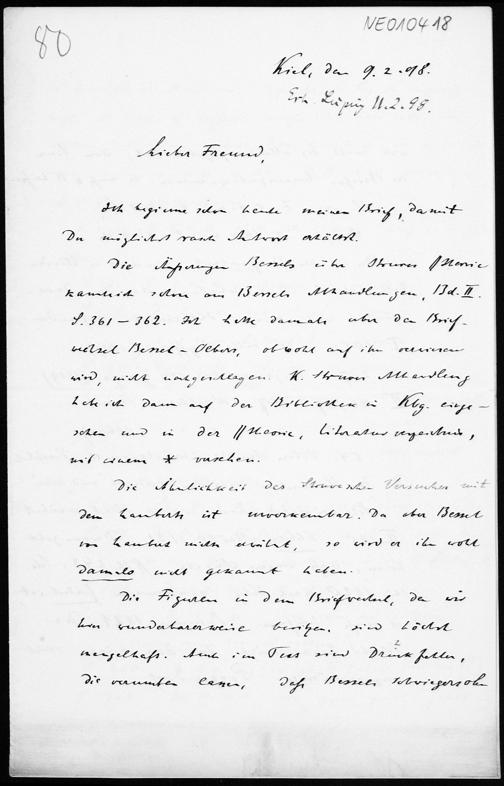 80
NE010418
Kiel, den 9.2.98.
Erh. Leipzig 11.2.98.
Lieber Freund,
Ich beginne schon heute meinen Brief, damit
Du möglichst rasch Antwort erhältst.
Die Äußerungen Bessels über Struves //theorie
kannte ich schon aus Bessels Abhandlungen, Bd. II.
S. 361 – 362. Ich hatte damals aber den Brief-
wechsel Bessel-Olbers, obwohl auf ihn verwiesen
wird, nicht nachgeschlagen. K. Struves Abhandlung
habe ich dann auf der Bibliothek in Kbg. einge-
sehen und in der //theorie, Literaturverzeichnis,
mit einem * versehen.
Die Ähnlichkeit des Struveschen Versuches mit
dem Lamberts ist unverkennbar. Da aber Bessel
von Lambert nichts erwähnt, so wird er ihn wohl
damals nicht gekannt haben.
Die Figuren in dem Briefwechsel, den wir
hier wunderbarerweise besitzen, sind höchst
mangelhaft. Auch im Text sind Druckfehler,
die vermuten lassen, daß Bessels Schwiegersohn